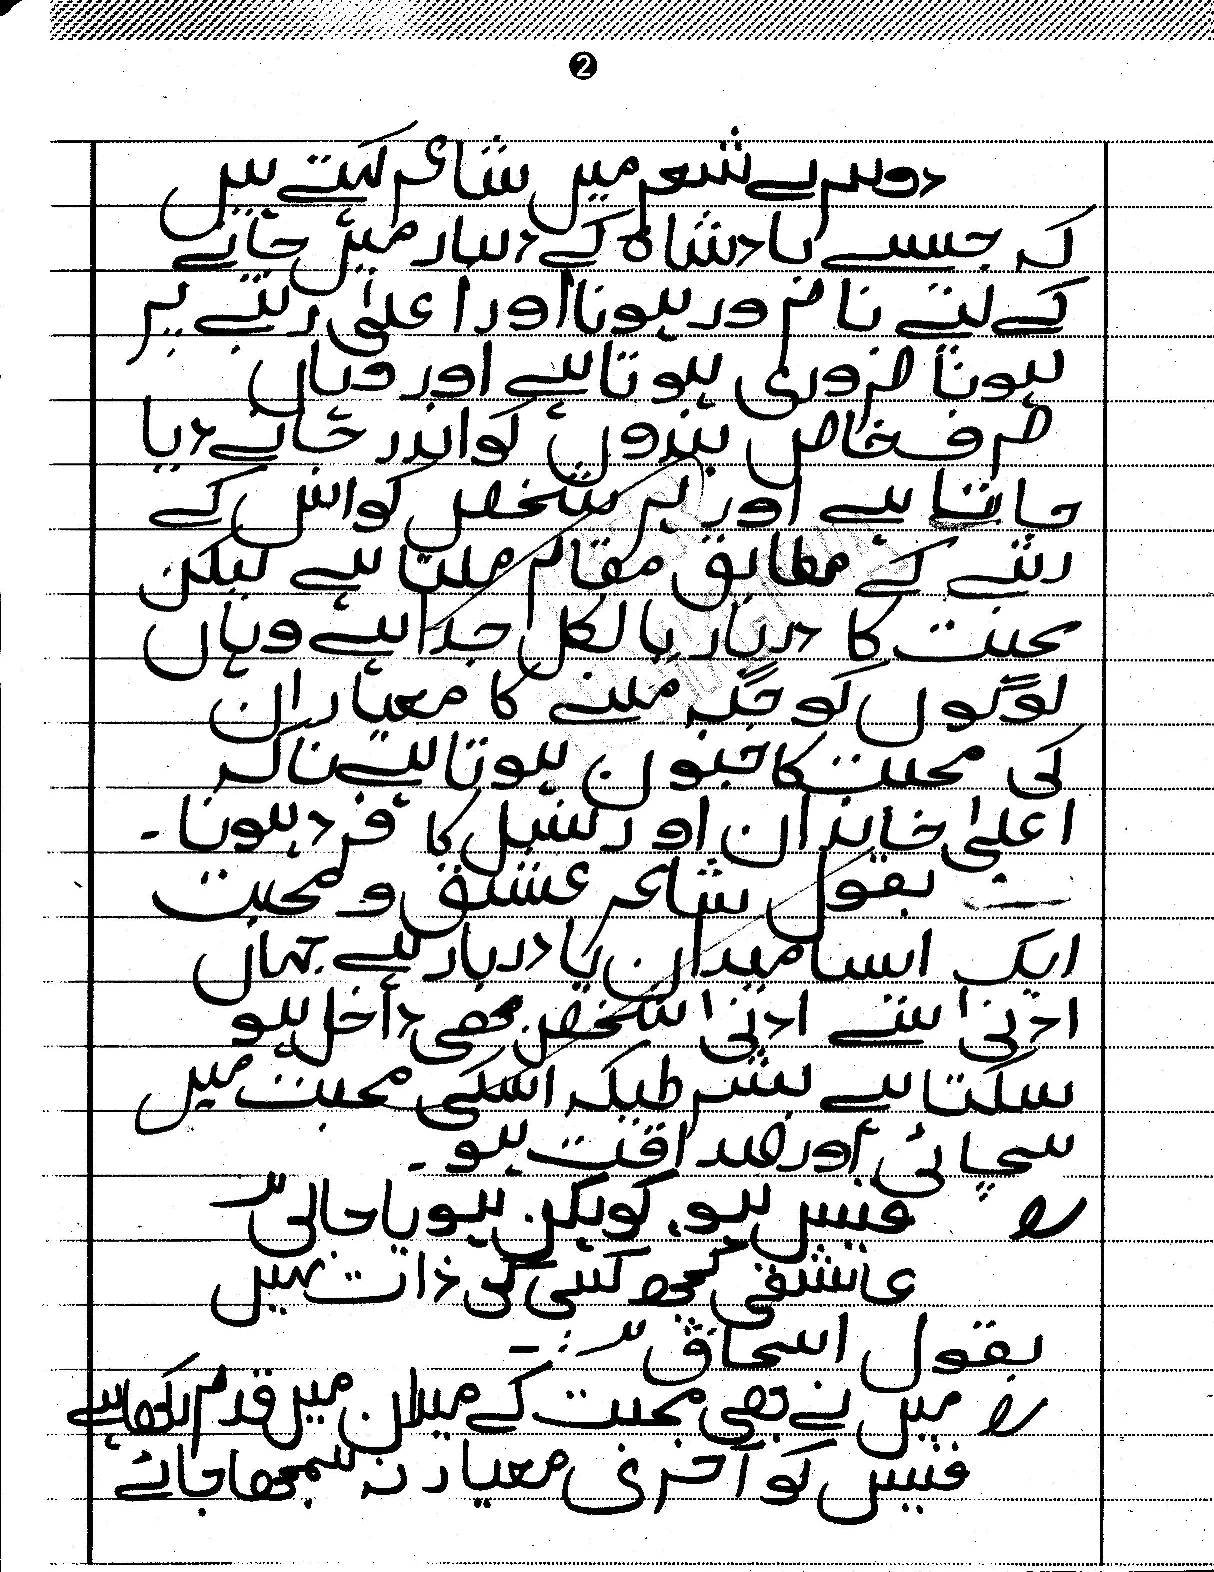 2
دوسرے شعر میں شاعر کہتے ہیں
کہ جیسے بادشاہ کے دربار میں جانے
کے لئے نامور ہونا اور اعلیٰ رتبے پر
ہونا ضروری ہوتا ہے اور وہاں
صرف خاص بندوں کو اندر جانے دیا
جاتا ہے اور ہر شخص کو اس کے
رتبے کے مطابق مقام ملتا ہے لیکن
محبت کا دربار بالکل جدا ہے وہاں
لوگوں کو جگہ ملنے کا معیار ان
کی محبت کا جنون ہوتا ہے نا کہ
اعلیٰ خاندان اور نسل کا فرد ہونا۔
بقول شاعر عشق و محبت
ایک ایسا میدان یا دربار ہے جہاں
ادنیٰ سے ادنیٰ شخص بھی داخل ہو
سکتا ہے بشرطیکہ اسکی محبت میں
سچائی اور صداقت ہو۔
قیس ہو، کوہکن ہو یا حالی
عاشقی کچھ کسی کی ذات نہیں
بقول اسحاق :۔
میں نے بھی محبت کے میدان میں قدم رکھا ہے
قیس کو آخری معیار نہ سمجھا جائے